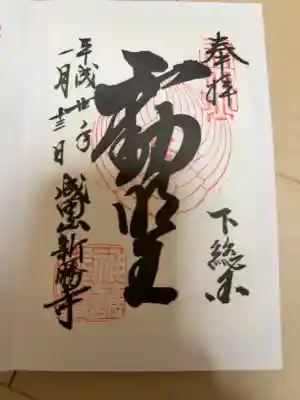 奉拝
下総国
不動明王
平成廿年
一月十三日
成田山新勝寺